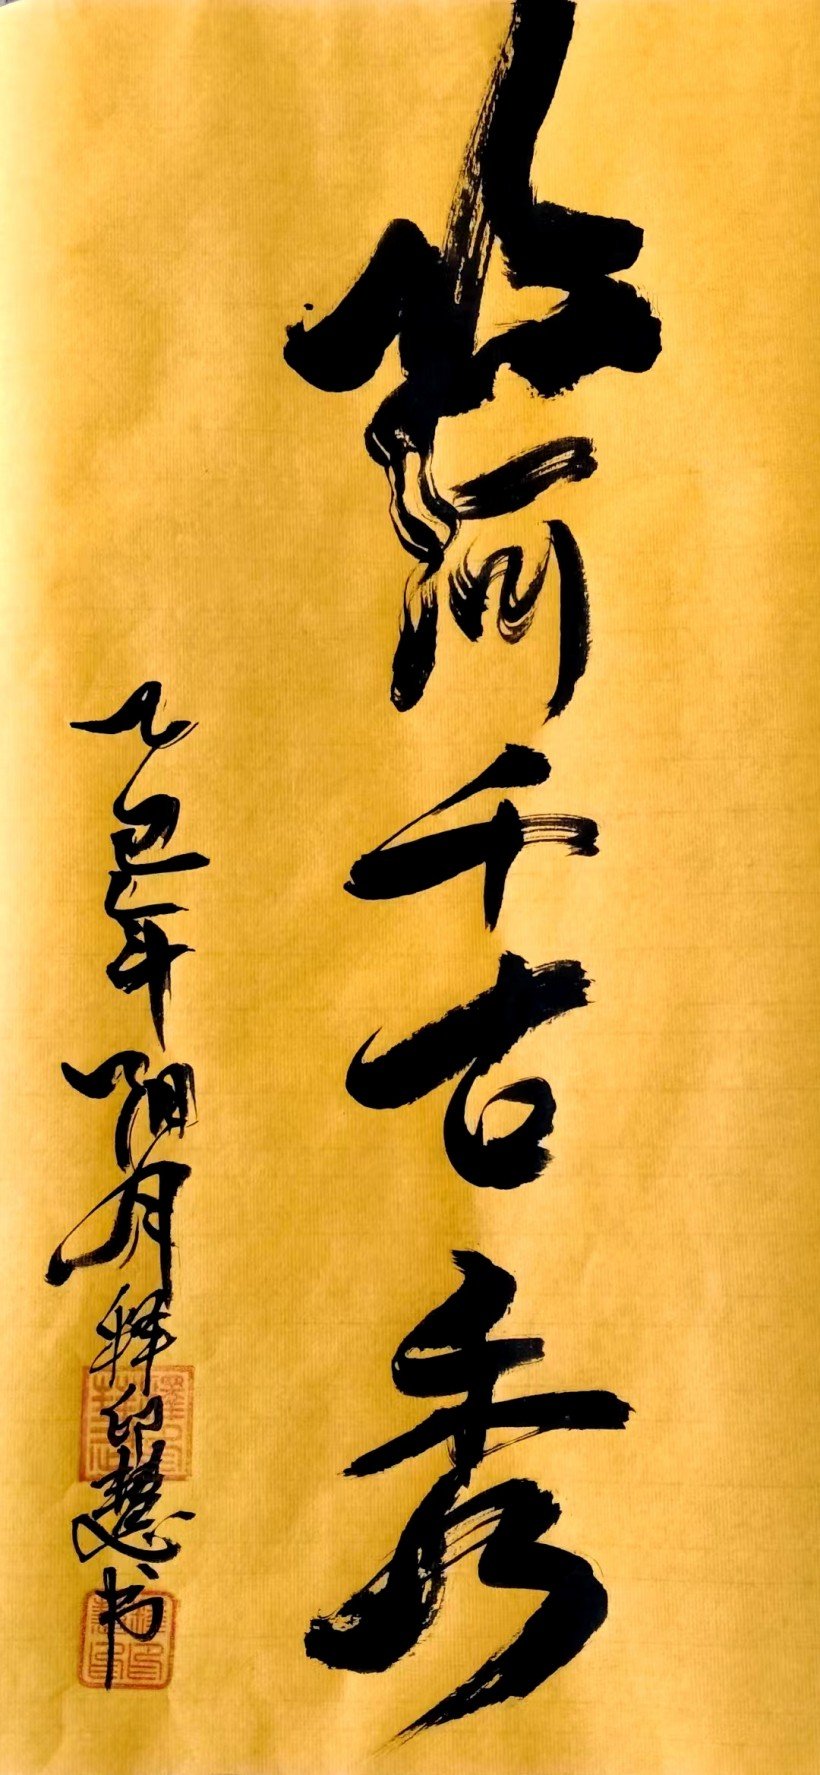 山河千古秀
乙巳年阳月释印慧书